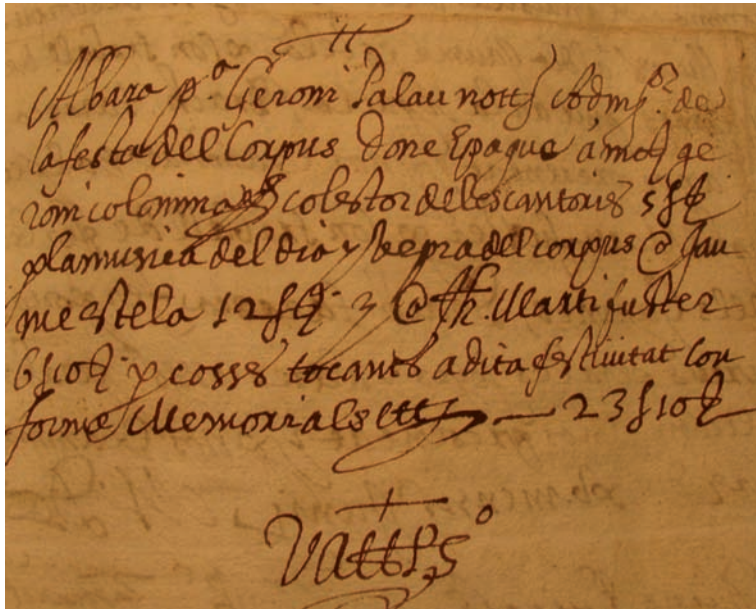 Albara pª Geroni Palau nott Adm.or de
la festa del Corpus done Epaque á mo ge
roni colonima colector dels cantoris 5 ₤
p la musica del dia y bepra del corpus @ Jau
me estela 12 ₤ y @ Marti fuster
6 ₤ 10 p cosses tocants a dita festivitat con
forme Memorials ett — 23 ₤ 10